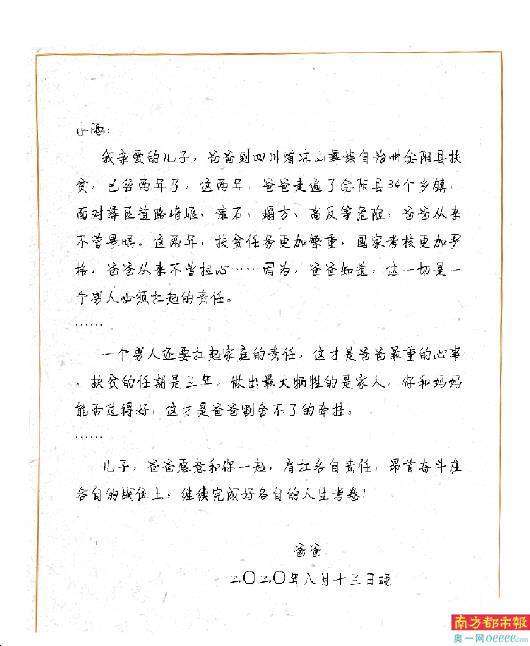 我亲爱的儿子，爸爸到四川省凉山彝族自治州金阳县扶
贫，已经两年了，这两年，爸爸走遍了金阳县34个乡镇，
面对彝区道路塌堰、滚石、塌方、高反等危险，爸爸从来
不曾畏惧。这两年，扶贫任务更加繁重，国家考核更加严
格，爸爸从来不曾担心……因为，爸爸知道，这一切是一
个男人必须扛起的责任。
……
一个男人还要扛起家庭的责任，这才是爸爸最重的心事
。扶贫的任期是三年，做出最大牺牲的是家人，你和妈妈
能否过得好，这才是爸爸割舍不了的牵挂。
……
儿子，爸爸愿爸和你一起，肩扛各自责任，昂首奋斗在
各自的战位上，继续完成好各自的人生考卷！
爸爸
二〇二〇年八月十三日晚
南方都市報
奥一网oeeee.com